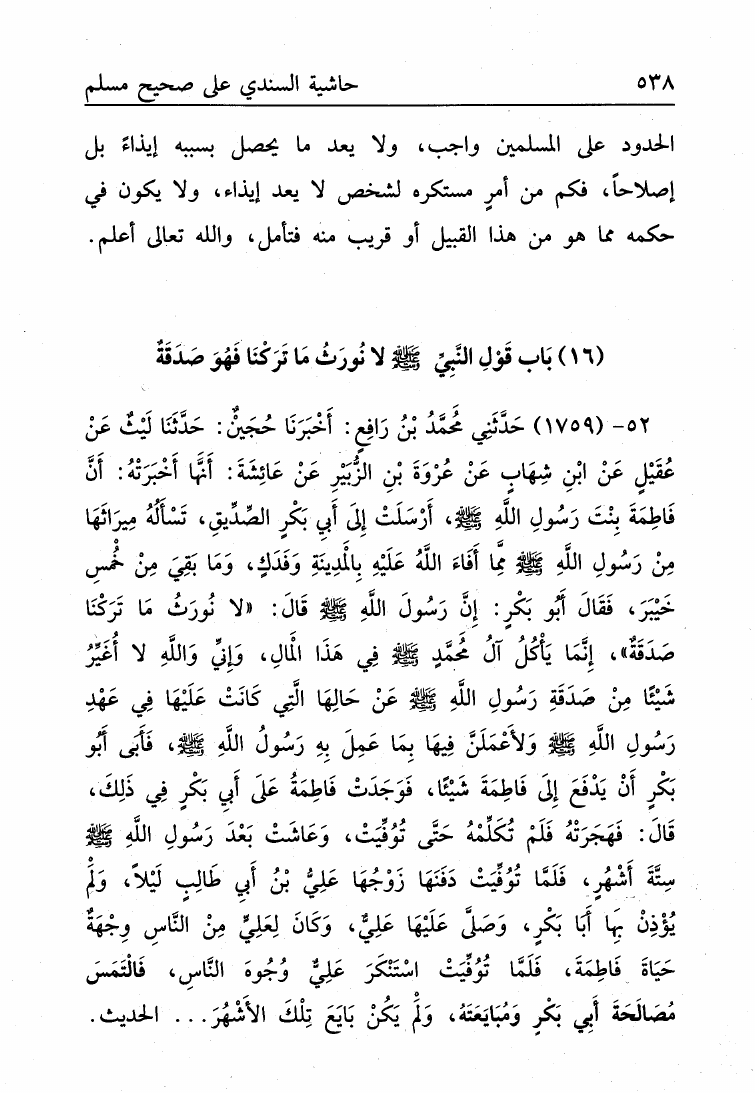 ٥٣٨ حاشية السندي على صحيح مسلم
الحدود على المسلمين واجب، ولا يعد ما يحصل بسببه إيذاءً بل
إصلاحاً، فكم من أمرٍ مستكره لشخص لا يعد إيذاء، ولا يكون في
حكمه مما هو من هذا القبيل أو قريب منه فتأمل، والله تعالى أعلم.
(١٦) بَاب قَوْلِ النَّبِيِّ ﷺ لا نُورَثُ مَا تَرَكْنَا فَهُوَ صَدَقَةٌ
٥٢- (١٧٥٩) حَدَّثَنِي مُحَمَّدُ بْنُ رَافِعٍ: أَخْبَرَنَا حُجَيْنٌ: حَدَّثَنَا لَيْثٌ عَنْ
عُقَيْلٍ عَنْ ابْنِ شِهَابٍ عَنْ عُرْوَةَ بْنِ الزُّبَيْرِ عَنْ عَائِشَةَ: أَنَّهَا أَخْبَرَتْهُ: أَنَّ
فَاطِمَةَ بِنْتَ رَسُولِ اللَّهِ ﷺ، أَرْسَلَتْ إِلَى أَبِي بَكْرٍ الصِّدِّيقِ، تَسْأَلُهُ مِيرَاثَهَا
مِنْ رَسُولِ اللَّهِ ﷺ مِمَّا أَفَاءَ اللَّهُ عَلَيْهِ بِالْمَدِينَةِ وَفَدَكٍ، وَمَا بَقِيَ مِنْ خُمْسِ
خَيْبَرَ، فَقَالَ أَبُو بَكْرٍ: إِنَّ رَسُولَ اللَّهِ ﷺ قَالَ: «لا نُورَثُ مَا تَرَكْنَا
صَدَقَةٌ»، إِنَّمَا يَأْكُلُ آلُ مُحَمَّدٍ ﷺ فِي هَذَا الْمَالِ، وَإِنِّي وَاللَّهِ لا أُغَيِّرُ
شَيْئًا مِنْ صَدَقَةِ رَسُولِ اللَّهِ ﷺ عَنْ حَالِهَا الَّتِي كَانَتْ عَلَيْهَا فِي عَهْدِ
رَسُولِ اللَّهِ ﷺ وَلأَعْمَلَنَّ فِيهَا بِمَا عَمِلَ بِهِ رَسُولُ اللَّهِ ﷺ، فَأَبَى أَبُو
بَكْرٍ أَنْ يَدْفَعَ إِلَى فَاطِمَةَ شَيْئًا، فَوَجَدَتْ فَاطِمَةُ عَلَى أَبِي بَكْرٍ فِي ذَلِكَ،
قَالَ: فَهَجَرَتْهُ فَلَمْ تُكَلِّمْهُ حَتَّى تُوُفِّيَتْ، وَعَاشَتْ بَعْدَ رَسُولِ اللَّهِ ﷺ
سِتَّةَ أَشْهُرٍ، فَلَمَّا تُوُفِّيَتْ دَفَنَهَا زَوْجُهَا عَلِيُّ بْنُ أَبِي طَالِبٍ لَيْلاً، وَلَمْ
يُؤْذِنْ بِهَا أَبَا بَكْرٍ، وَصَلَّى عَلَيْهَا عَلِيٌّ، وَكَانَ لِعَلِيٍّ مِنْ النَّاسِ وِجْهَةٌ
حَيَاةَ فَاطِمَةَ، فَلَمَّا تُوُفِّيَتْ اسْتَنْكَرَ عَلِيٌّ وُجُوهَ النَّاسِ، فَالْتَمَسَ
مُصَالَحَةَ أَبِي بَكْرٍ وَمُبَايَعَتَهُ، وَلَمْ يَكُنْ بَايَعَ تِلْكَ الأَشْهُرَ... الحديث.